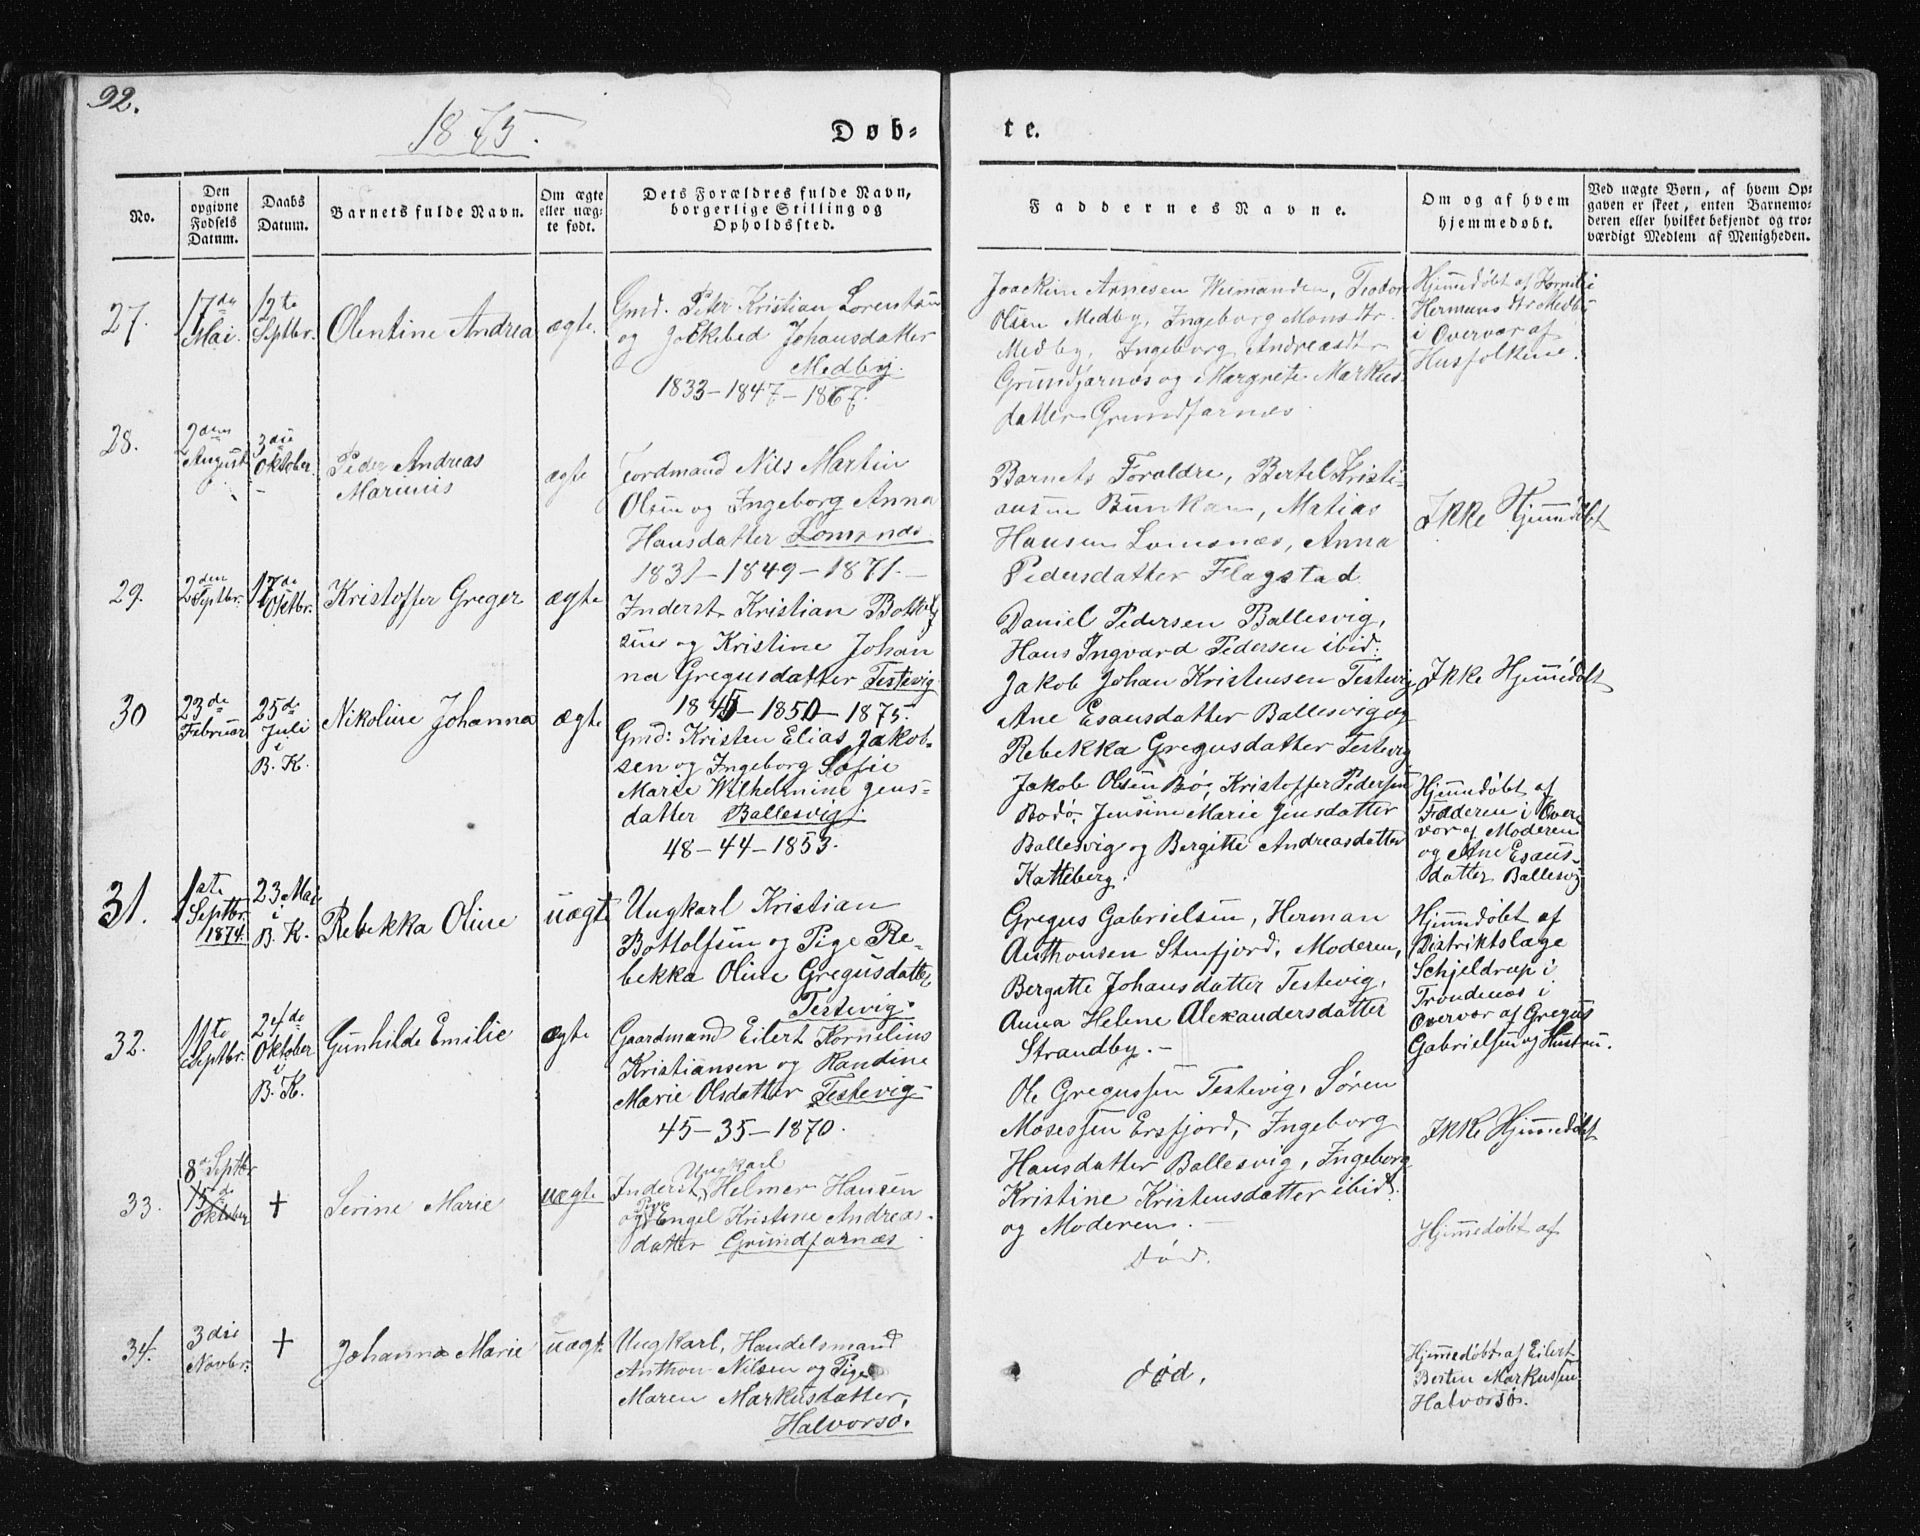 92.
1875.
Døb-
te.
No.
Den
opgivne
Fødsels
Datum.
Daabs
Datum.
Barnets fulde Navn.
Om ægte
eller uæg-
te født.
Dets Forældres fulde Navn,
borgerlige Stilling og
Opholdssted.
Faddernes Navne.
Om og af hvem
hjemmedøbt.
Ved uægte Børn, af hvem Op-
gaven er skeet, enten Barnemo-
deren eller hvilket bekjendt og tro-
værdigt Medlem af Menigheden.
27.
17de
Mai.
12te
Septbr.
Olentine Andrea
ægte.
Gmd. Peter Kristian Lorentsen
og Jokebed Johansdatter
Medby.
1833-1847-1867.
Joackim Arnesen Weimanden, Teodor
Olsen Medby, Ingeborg Monsdtr
Medby, Ingeborg Andreasdtr
Grundfarnæs og Margrete Markus-
datter Grundfarnæs
Hjemmedøbt af Kornelie
Hermansdtr Medby
i Overvær af
Husfolkene.
28.
2den
August
3die
Oktober.
Peder Andreas
Marinius
ægte
Jordmand Nils Martin
Olsen og Ingeborg Anna
Hansdatter Lomsnæs
1831-1849-1871.-
Barnets Forældre, Bertel Kristi-
ansen Bunkan, Matias
Hansen Lomsnæs, Anna
Pedersdatter Flagstad.
Ikke Hjemmedøbt
29.
2den
Septbr.
17de
Oktbr.
Kristoffer Greger
ægte
Inderst Kristian Bottolf
sen og Kristine Johan
na Gregusdatter Testevig
1845-1850-1875.
Daniel Pedersen Ballesvig,
Hans Ingvard Pedersen ibid:
Jakob Johan Kristensen Testevig
Ane Esausdatter Ballesvig og
Rebekka Gregusdatter Testevig
Ikke Hjemmedøbt
30
23de
Februar
25de
Juli
i
B. K.
Nikoline Johanna
ægte
Gmd: Kristen Elias Jakob-
sen og Ingeborg Sofie
Marie Wilhelmine Jens-
datter Ballesvig.
48-44-1853.
Jakob Olsen Bø, Kristoffer Pedersen
Bodø, Jensine Marie Jensdatter
Ballesvig og Bergitte Andreasdatter
Katteberg.
Hjemmedøbt af
Faderen i Over
vær af Moderen
og Ane Esaus-
datter Ballesvig
31.
1ste
Septbr.
1874.
23 Mai
i
B. K.
Rebekka Oline
uægte
Ungkarl Kristian
Bottolfsen og Pige Re-
bekka Oline Gregusdatter
Testevig.
Gregus Gabrielsen, Herman
Anthonsen Stenfjord, Moderen,
Bergitte Johansdatter Testevig,
Anna Helene Alexandersdatter
Strandby.-
Hjemmedøbt af
Distriktslæge
Schjeldrup i
Trondenæs i
Overvær af Gregus
Gabrielsen og Hustru.
32.
11te
Septbr.
24de
Oktober
i
B. K.
Gunhilde Emilie
ægte
Gaardmand Eilert Kornelius
Kristiansen og Randine
Marie Olsdatter Testevig-
45-35-1870.
Ole Gregussen Testevig, Søren
Mosessen Ersfjord, Ingeborg
Hansdatter Ballesvig, Ingeborg
Kristine Kristensdatter ibid.
og Moderen.-
Ikke Hjemmedøbt
33.
8de Septbr
15de
Oktober
+
Serine Marie
uægte
Ungkarl
Inderst Helmer Hansen
Pige
og Engel Kristine Andreas-
datter Grundfarnæs
Død.
Hjemmedøbt af
34.
3die
Novbr.
+
Johanna Marie
uægte
Ungkarl, Handelsmand
Anthon Nilsen og Pige
Maren Markusdatter,
Halvorsø.
død.
Hjemmedøbt af Eilert
Bertin Markussen
Halvorsø.